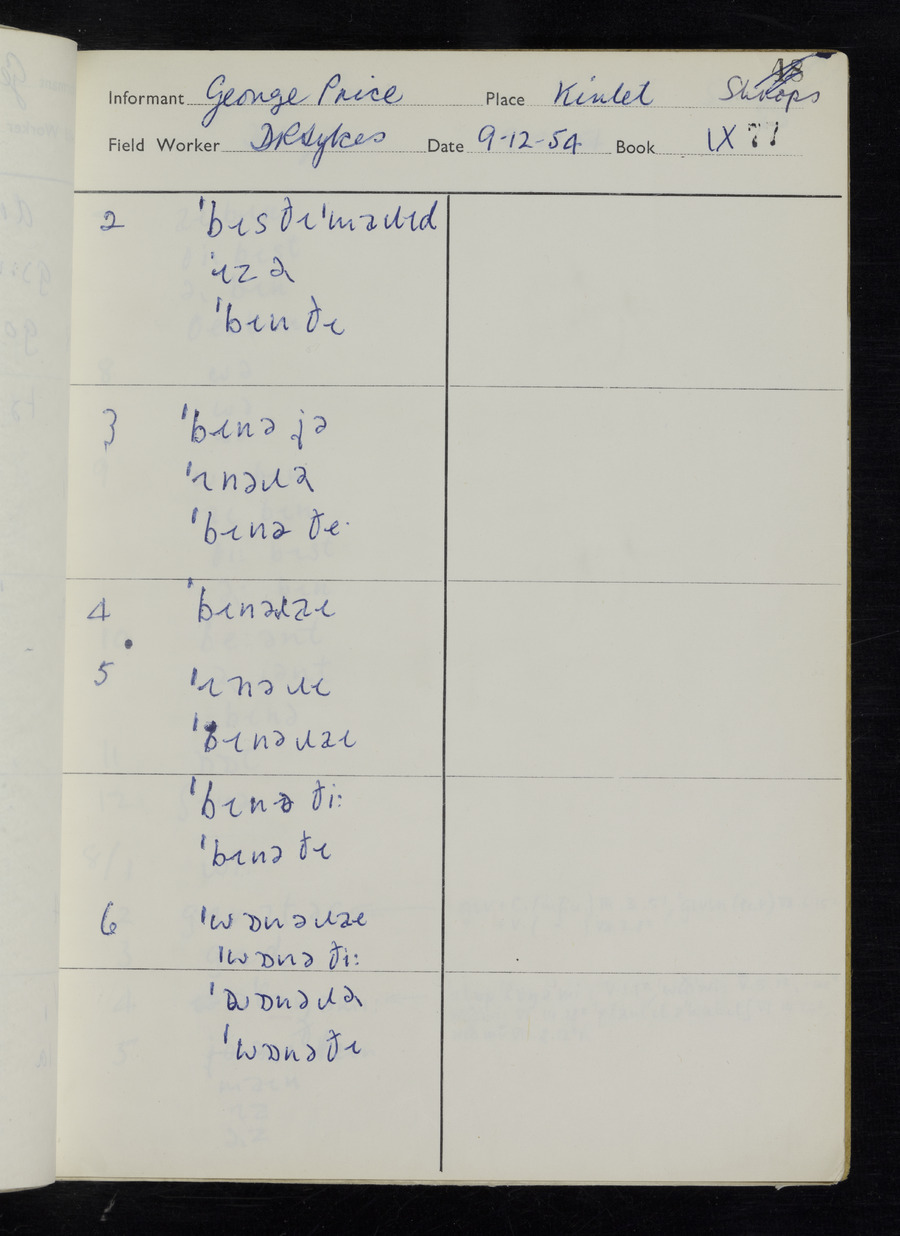 Informant George Price Place Kinlet Shrops
Field Worker DRSykes Date 9-12-54 Book IX 7?
2 ˈbɪs ðɪˈmaɹɪd
ˈɪz ə
ˈbɪn ðɪ
3 ˈbɪnə jə
ˈɪnəɹə
ˈbɪnə ðɪ
4 ˈbɪnəɹaɪ
5 ˈɪnəɹɪ
ˈbɪnəɹaɪ
ˈbɪnə ði:
ˈbɪnə ðɪ
6 ˈwɒnəɹaɪ
ˈwɒnə ði:
ˈwɒnəɹə
ˈwɒnə ðɪ